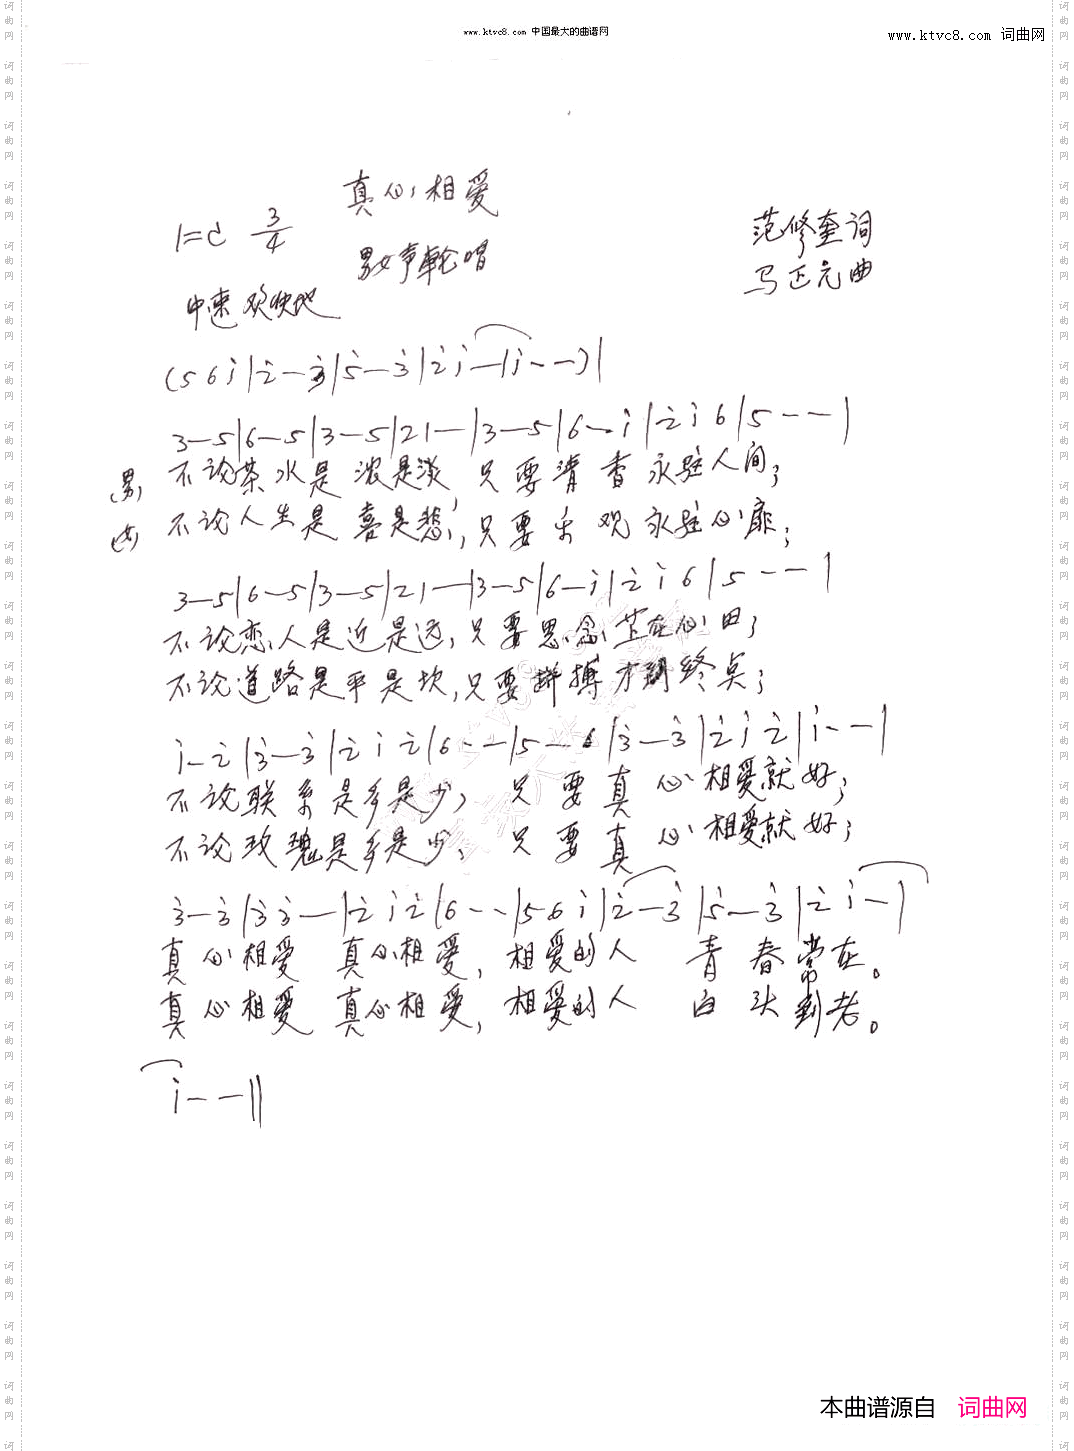 www.ktvc8.com 中国最大的曲谱网
www.ktvc8.com 词曲网
真心相爱
1=C 3/4
男女声轮唱
范修奎词
马正元曲
中速 欢快地
(5 6 i̇ | 2̇ — 3̇ | 5̇ — 3̇ | 2̇ i̇ — | i̇ - — ) |
3 — 5 | 6 — 5 | 3 — 5 | 2 1 — | 3 — 5 | 6 — i̇ | 2̇ i̇ 6 | 5 - — |
(男) 不论茶水是浓是淡,只要清香永驻人间;
(女) 不论人生是喜是愁,只要乐观永驻心扉;
3 — 5 | 6 — 5 | 3 — 5 | 2 1 — | 3 — 5 | 6 — i̇ | 2̇ i̇ 6 | 5 - — |
不论恋人是近是远,只要思念在心田;
不论道路是平是坎,只要拼搏才到终点;
i̇ - 2̇ | 3̇ — 3̇ | 2̇ i̇ 2̇ | 6 - — | 5 — 6 | 3̇ — 3̇ | 2̇ i̇ 2̇ | i̇ - — |
不论联系是多是少,只要真心相爱就好;
不论玫瑰是多是少,只要真心相爱就好;
3̇ — 3̇ | 3̇ 3̇ — | 2̇ i̇ 2̇ | 6 - - | 5 6 i̇ | 2̇ — 3̇ | 5̇ — 3̇ | 2̇ i̇ — |
真心相爱 真心相爱,相爱的人 青春常在。
真心相爱 真心相爱,相爱的人 白头到老。
i̇ - — ||
本曲谱源自 词曲网